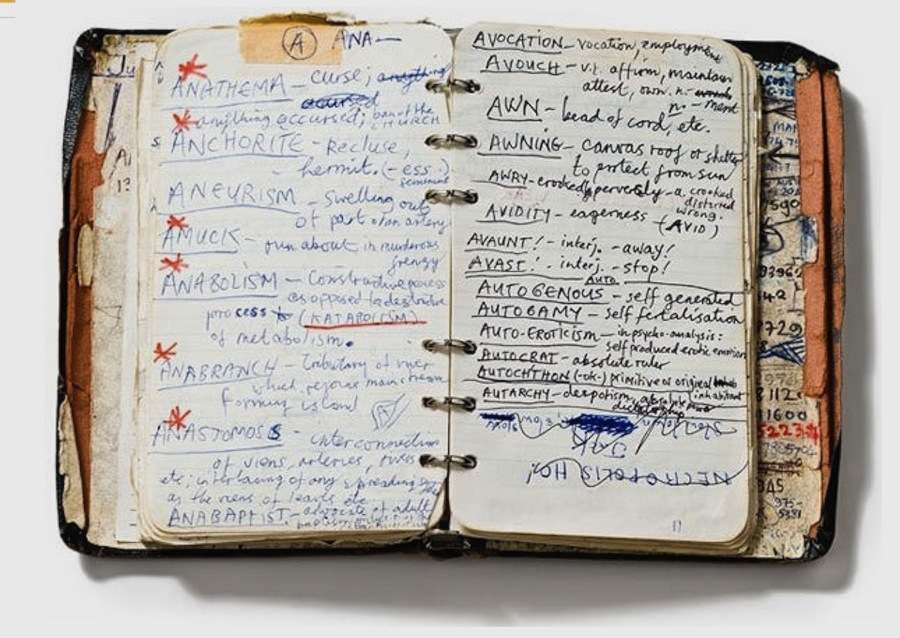 A ANA—
ANATHEMA – curse; anything
accursed
anything accursed; ban of the
CHURCH
ANCHORITE – RECLUSE,
hermit. (-ess.)
feminine
ANEURISM – Swelling out
of part of an artery
AMUCK – run about in murderous
frenzy
ANABOLISM – Constructive process
as opposed to destructive
process (KATABOLISM)
of metabolism.
ANABRANCH – tributary of river
which rejoins main stream
forming island
A
ANASTOMOSIS – interconnection
of viens, arteries, rivers
etc; interlacing of any spreading
as the viens of leaves etc
ANABAPTIST – advocate of adult
AVOCATION – vocation, employment
AVOUCH – v.t. affirm, maintain
attest, own. n.
n. – ment
AWN – beard of corn, etc.
AWNING – canvas roof or shelter
to protect from sun
AWRY – crookedly, perversely – a. crooked
distorted
wrong.
AVIDITY – eagerness (AVID)
AVAUNT! – interj. – away!
AVAST! – interj. – stop!
AUTO
AUTOGENOUS – self generated
AUTOGAMY – self fertalisation
AUTO-EROTICISM – in psycho-analysis:
self produced erotic emotion
AUTOCRAT – absolute ruler
AUTOCHTHON (-ok-) primitive or original
inhabitant
AUTARCHY – despotism, absolute
dictatorship
NECROPOLIS HO!